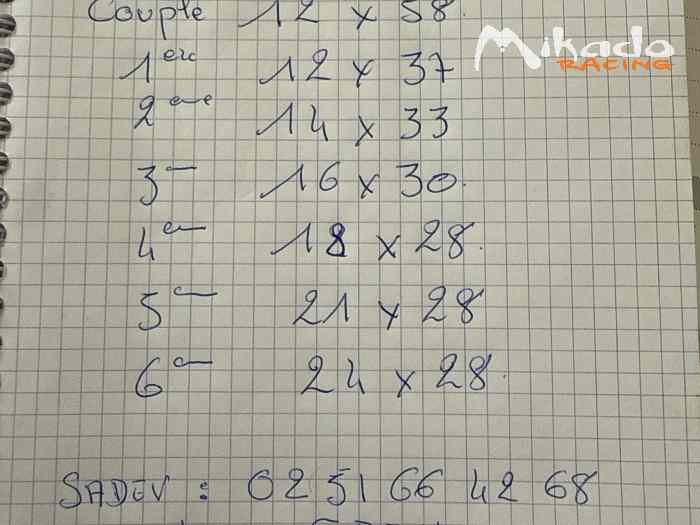 Couple 12 x 58.
Mikado
RACING
1ere 12 x 37
2eme 14 x 33
3em 16 x 30.
4em 18 x 28.
5em 21 x 28
6em 24 x 28.
SADEV : 02 51 66 42 68